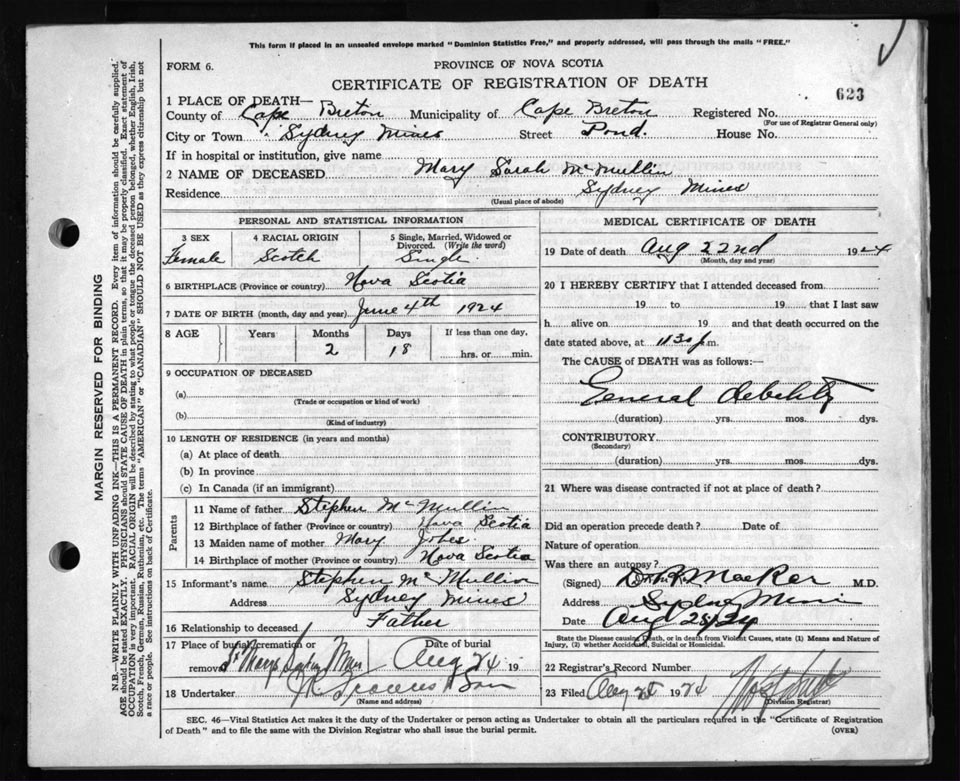 This form if placed in an unsealed envelope marked "Dominion Statistics Free," and properly addressed, will pass through the mails "FREE."
FORM 6.
PROVINCE OF NOVA SCOTIA
CERTIFICATE OF REGISTRATION OF DEATH
623
1 PLACE OF DEATH—
County of Cape Breton Municipality of Cape Breton Registered No.
(For use of Registrar General only)
City or Town Sydney Mines Street Pond. House No.
If in hospital or institution, give name
2 NAME OF DECEASED Mary Sarah McMullin
Residence Sydney Mines
(Usual place of abode)
PERSONAL AND STATISTICAL INFORMATION
3 SEX 4 RACIAL ORIGIN 5 Single, Married, Widowed or Divorced. (Write the word)
Female Scotch Single.
6 BIRTHPLACE (Province or country) Nova Scotia
7 DATE OF BIRTH (month, day and year) June 4th 1924
8 AGE Years Months Days If less than one day,
2 18 hrs. or min.
9 OCCUPATION OF DECEASED
(a)
(Trade or occupation or kind of work)
(b)
(Kind of industry)
10 LENGTH OF RESIDENCE (in years and months)
(a) At place of death
(b) In province
(c) In Canada (if an immigrant)
Parents
11 Name of father Stephen McMullin
12 Birthplace of father (Province or country) Nova Scotia
13 Maiden name of mother Mary
14 Birthplace of mother (Province or country) Nova Scotia
15 Informant's name Stephen McMullin
Address Sydney Mines
16 Relationship to deceased Father
17 Place of burial, cremation or removal St Marys Sydney Mines
Date of burial Aug 24 19
18 Undertaker Son
(Name and address)
MEDICAL CERTIFICATE OF DEATH
19 Date of death Aug 22nd 1924
(Month, day and year)
20 I HEREBY CERTIFY that I attended deceased from
19 to 19 that I last saw
h alive on 19 and that death occurred on the
date stated above, at 1130 p.m.
The CAUSE of DEATH was as follows:—
General debility
(duration) yrs. mos. dys.
CONTRIBUTORY
(Secondary)
(duration) yrs. mos. dys.
21 Where was disease contracted if not at place of death?
Did an operation precede death? Date of
Nature of operation
Was there an autopsy?
(Signed) M.D.
Address Sydney Mines
Date Aug 25/24
State the Disease causing Death, or in death from Violent Causes, state (1) Means and Nature of Injury, (2) whether Accidental, Suicidal or Homicidal.
22 Registrar's Record Number
23 Filed Aug 25 1924
(Division Registrar)
SEC. 46—Vital Statistics Act makes it the duty of the Undertaker or person acting as Undertaker to obtain all the particulars required in the "Certificate of Registration
of Death" and to file the same with the Division Registrar who shall issue the burial permit.
(OVER)
MARGIN RESERVED FOR BINDING
N.B.—WRITE PLAINLY WITH UNFADING INK—THIS IS A PERMANENT RECORD. Every item of information should be carefully supplied.
AGE should be stated EXACTLY. PHYSICIANS should STATE CAUSE OF DEATH in plain terms, so that it may be properly classified. Exact statement of
OCCUPATION is very important. RACIAL ORIGIN will be described by stating to what people or tongue the deceased person belonged, whether English, Irish,
Scotch, French, German, Russian, Ruthenian, etc. The terms "AMERICAN" or "CANADIAN" SHOULD NOT BE USED as they express citizenship but not
a race or people. See instructions on back of Certificate.